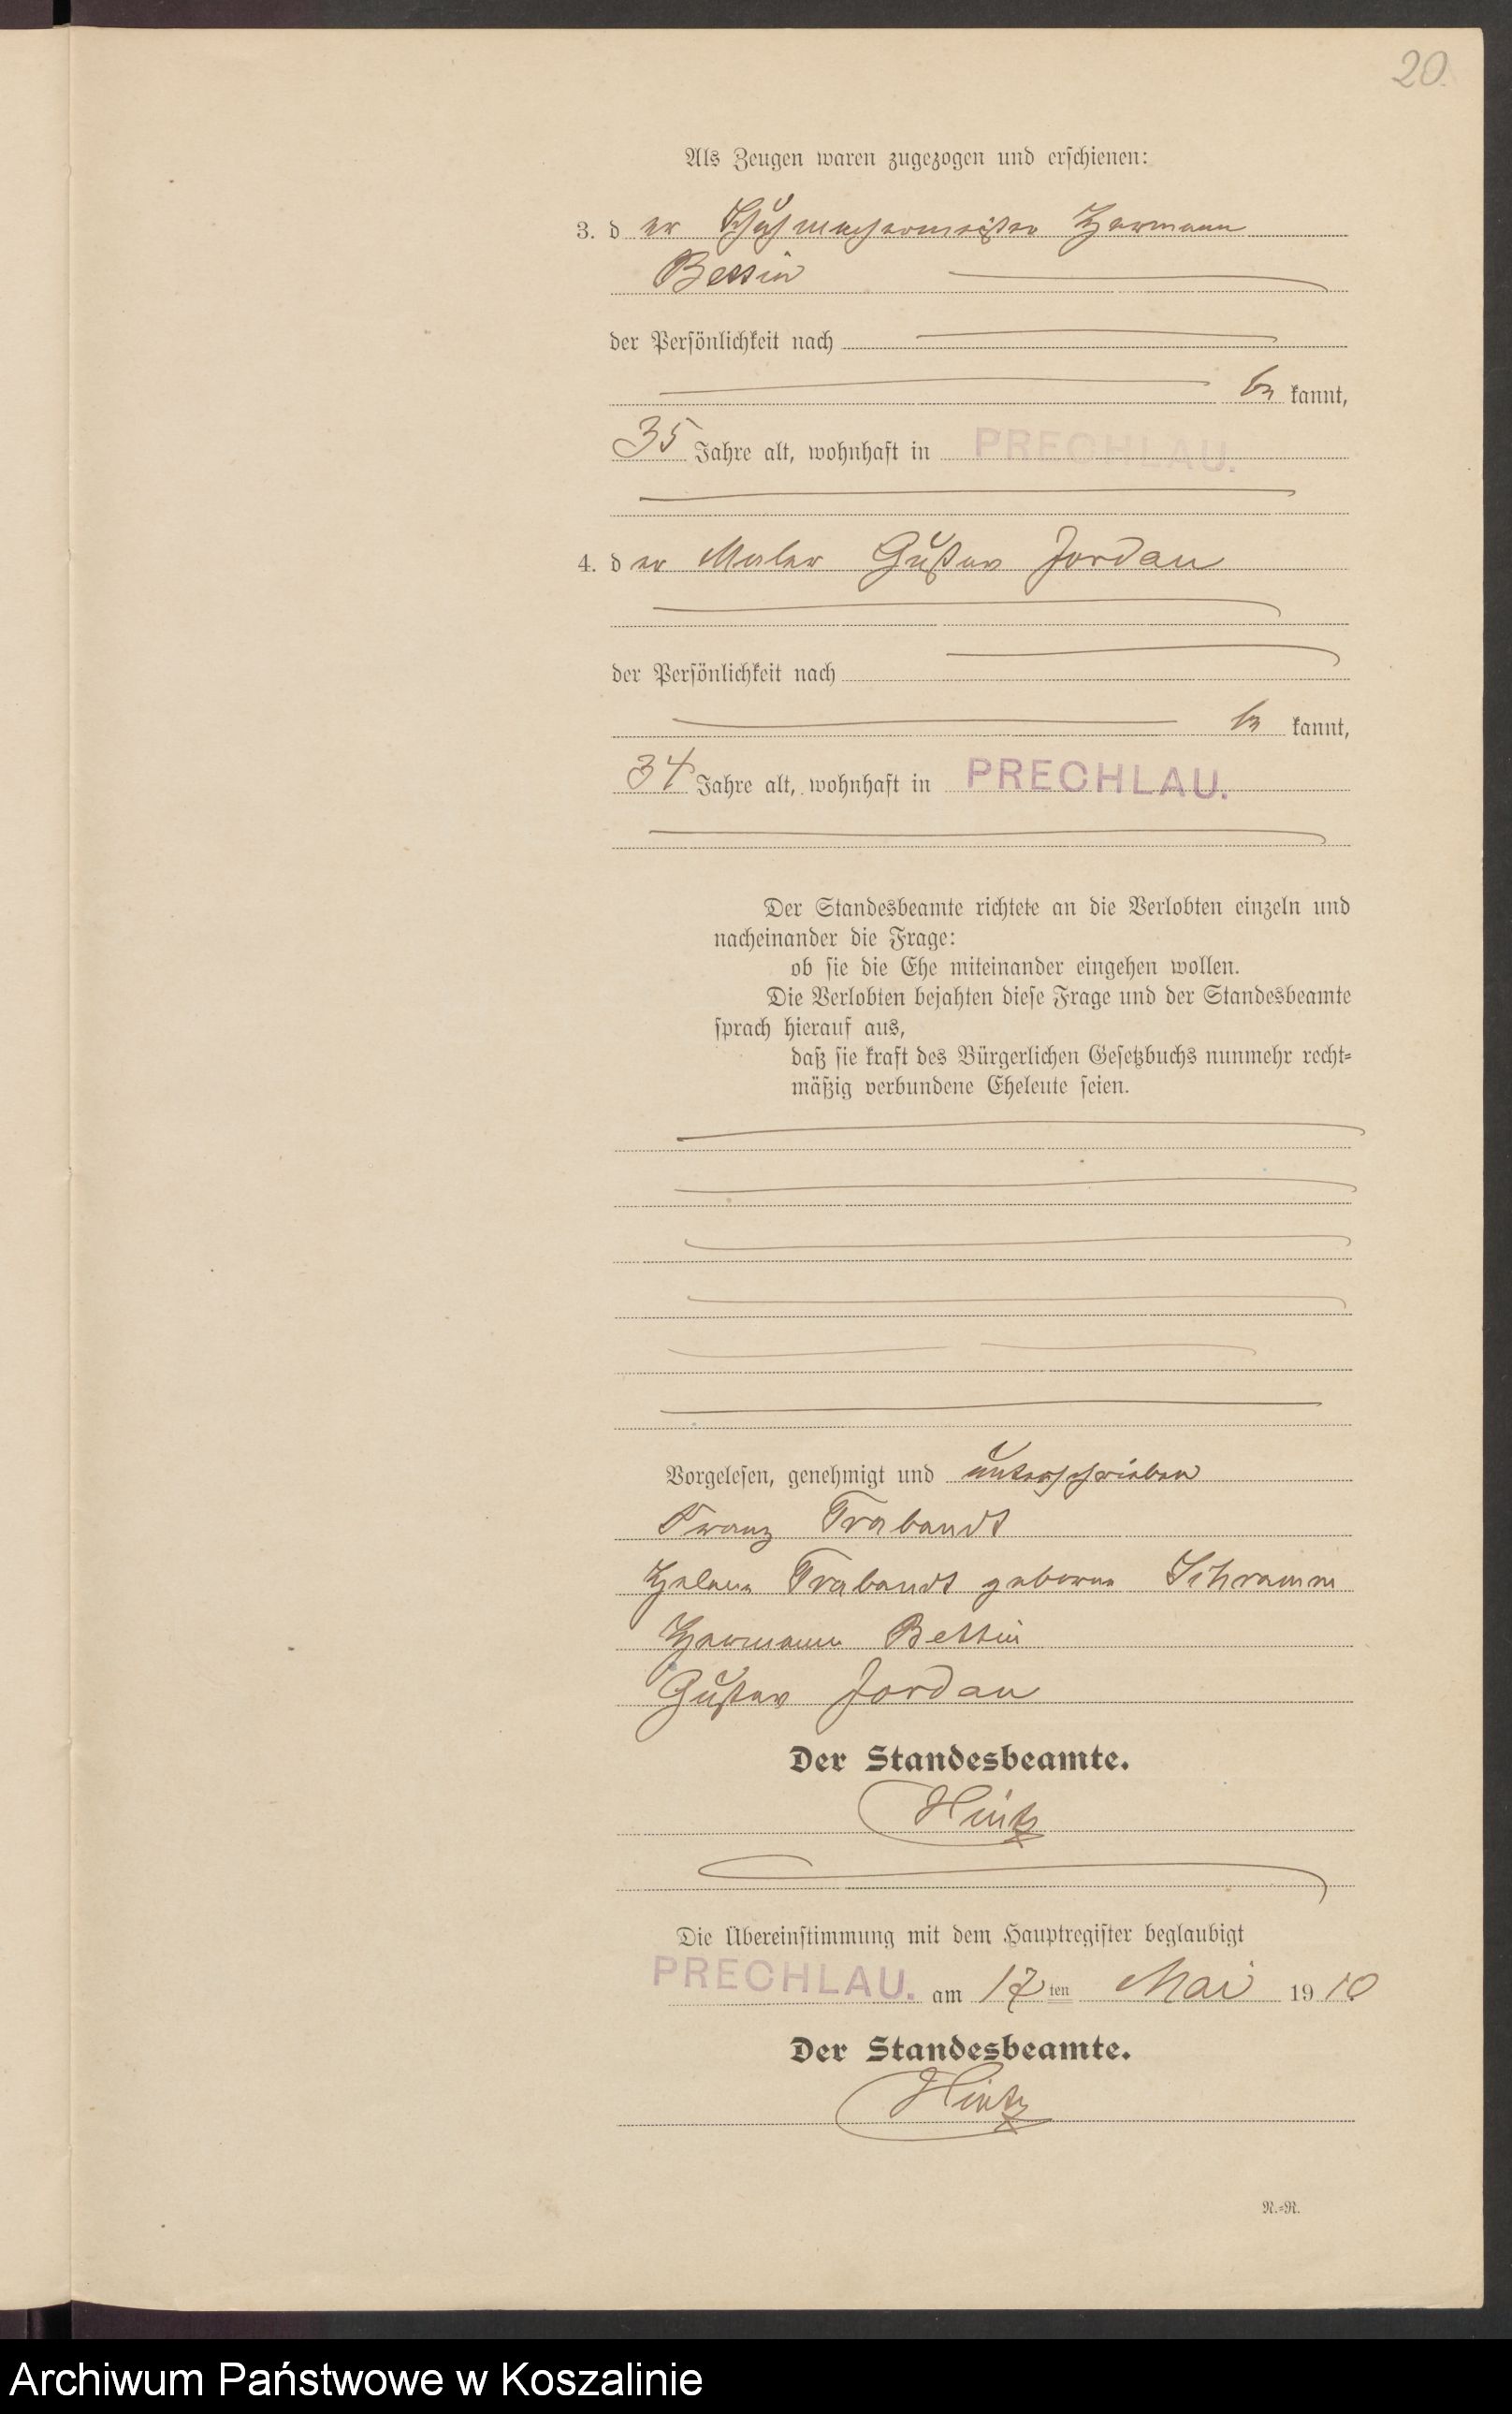 20.
Als Zeugen waren zugezogen und erschienen:
3. der Schuhmachermeister Hermann
Bettin
der Persönlichkeit nach
be kannt,
35 Jahre alt, wohnhaft in PRECHLAU.
4. der Maler Gustav Jordan
der Persönlichkeit nach
be kannt,
34 Jahre alt, wohnhaft in PRECHLAU.
Der Standesbeamte richtete an die Verlobten einzeln und
nacheinander die Frage:
ob sie die Ehe miteinander eingehen wollen.
Die Verlobten bejahten diese Frage und der Standesbeamte
sprach hierauf aus,
daß sie kraft des Bürgerlichen Gesetzbuchs nunmehr recht-
mäßig verbundene Eheleute seien.
Vorgelesen, genehmigt und unterschrieben
Franz Trabandt
Helene Trabandt geborene Schramm
Hermann Bettin
Gustav Jordan
Der Standesbeamte.
Hintz
Die Übereinstimmung mit dem Hauptregister beglaubigt
PRECHLAU. am 17ten Mai 1910
Der Standesbeamte.
Hintz
N.-R.
Archiwum Państwowe w Koszalinie